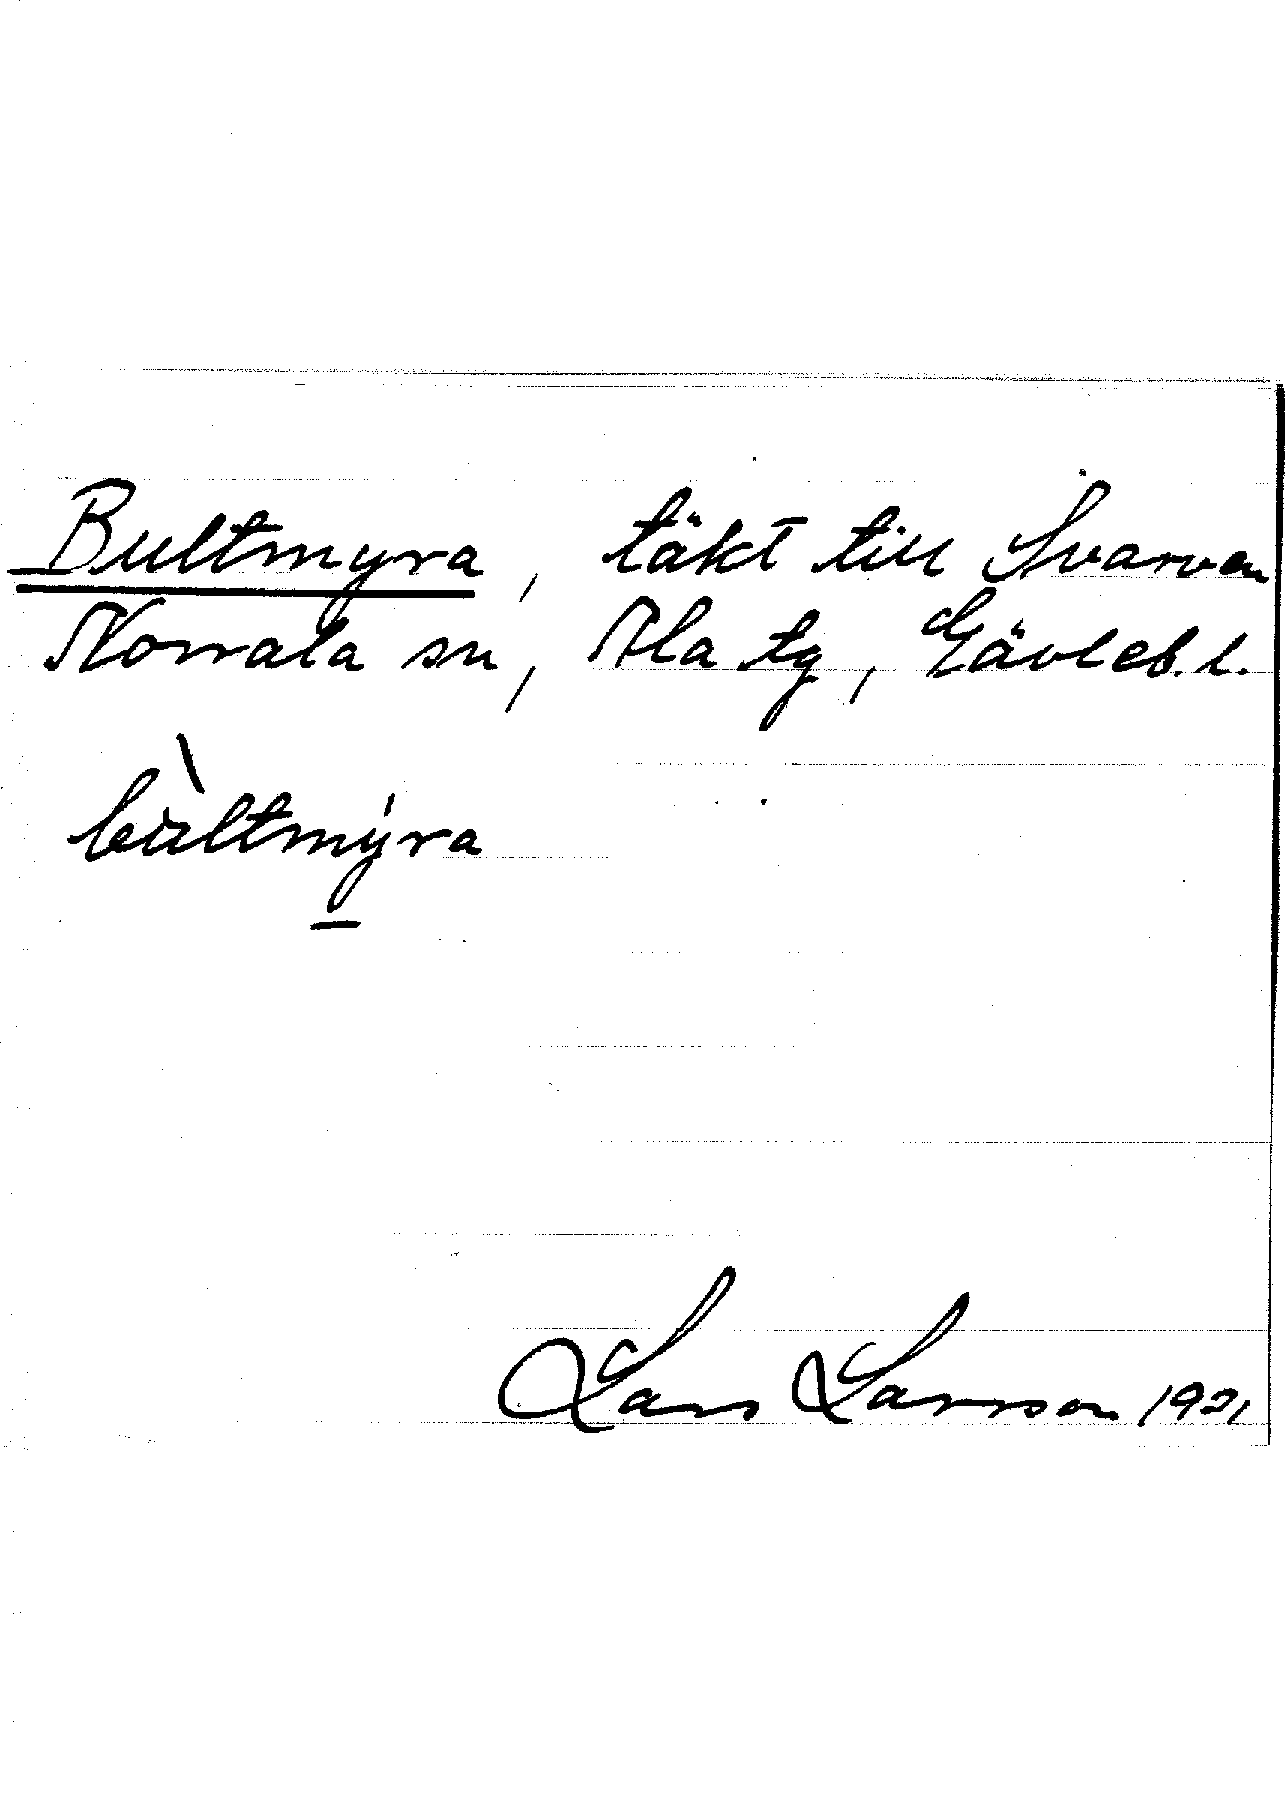 Bultmyra, täkt till Svarven
Norrala sn, Ala tg, Gävleb. l.
bu̇̀ltmýra
Lars Larsson 1921